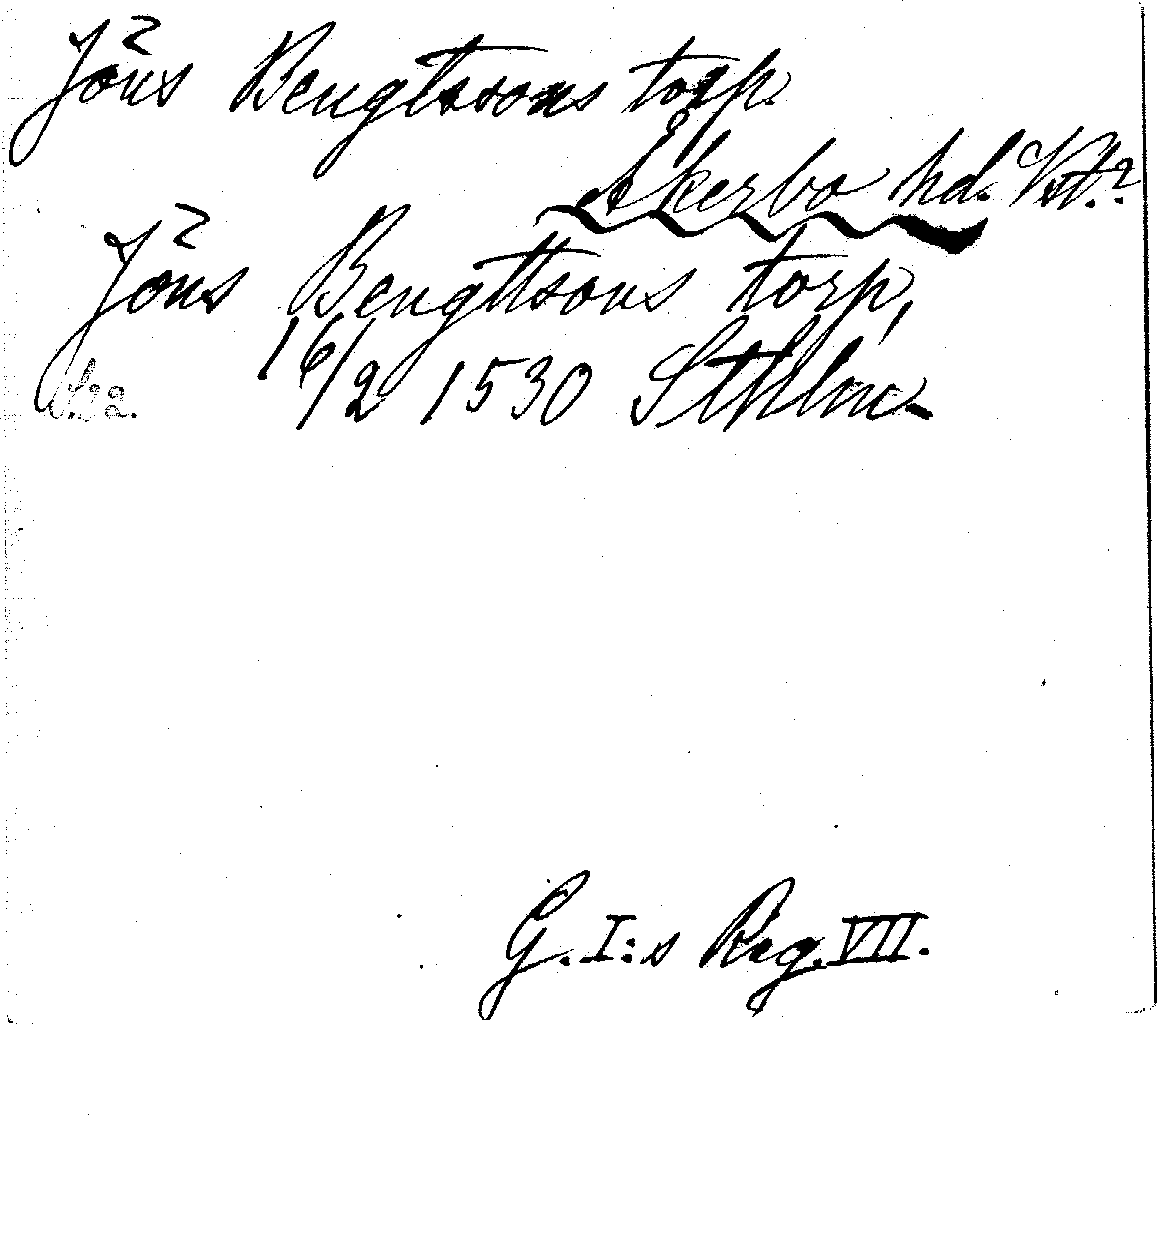 Jöns Bengtssons torp.
Åkerbo hd. Vstm?
Jöns Bengttsons torp,
16/2 1530 Sthlm.
G. I:s Reg. VII.